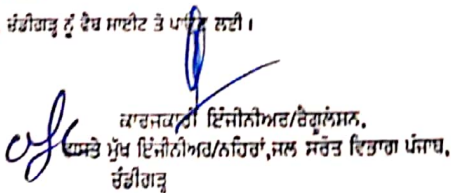 ਚੰਡੀਗੜ੍ਹ ਨੂੰ ਵੈਬ ਸਾਈਟ ਤੇ ਪਾਉਣ ਲਈ।
ਕਾਰਜਕਾਰੀ ਇੰਜੀਨੀਅਰ/ਰੈਗੂਲੇਸ਼ਨ,
ਵਾਸਤੇ ਮੁੱਖ ਇੰਜੀਨੀਅਰ/ਨਹਿਰਾਂ,ਜਲ ਸਰੋਤ ਵਿਭਾਗ ਪੰਜਾਬ,
ਚੰਡੀਗੜ੍ਹ